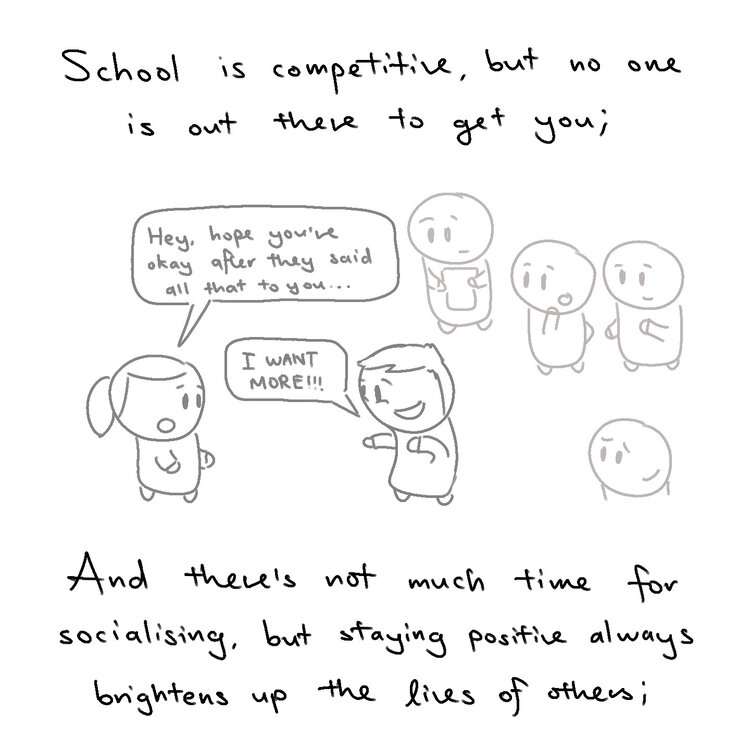 School is competitive, but no one
is out there to get you;
Hey, hope you're
okay after they said
all that to you...
I WANT
MORE!!!
And there's not much time for
socialising, but staying positive always
brightens up the lives of others;